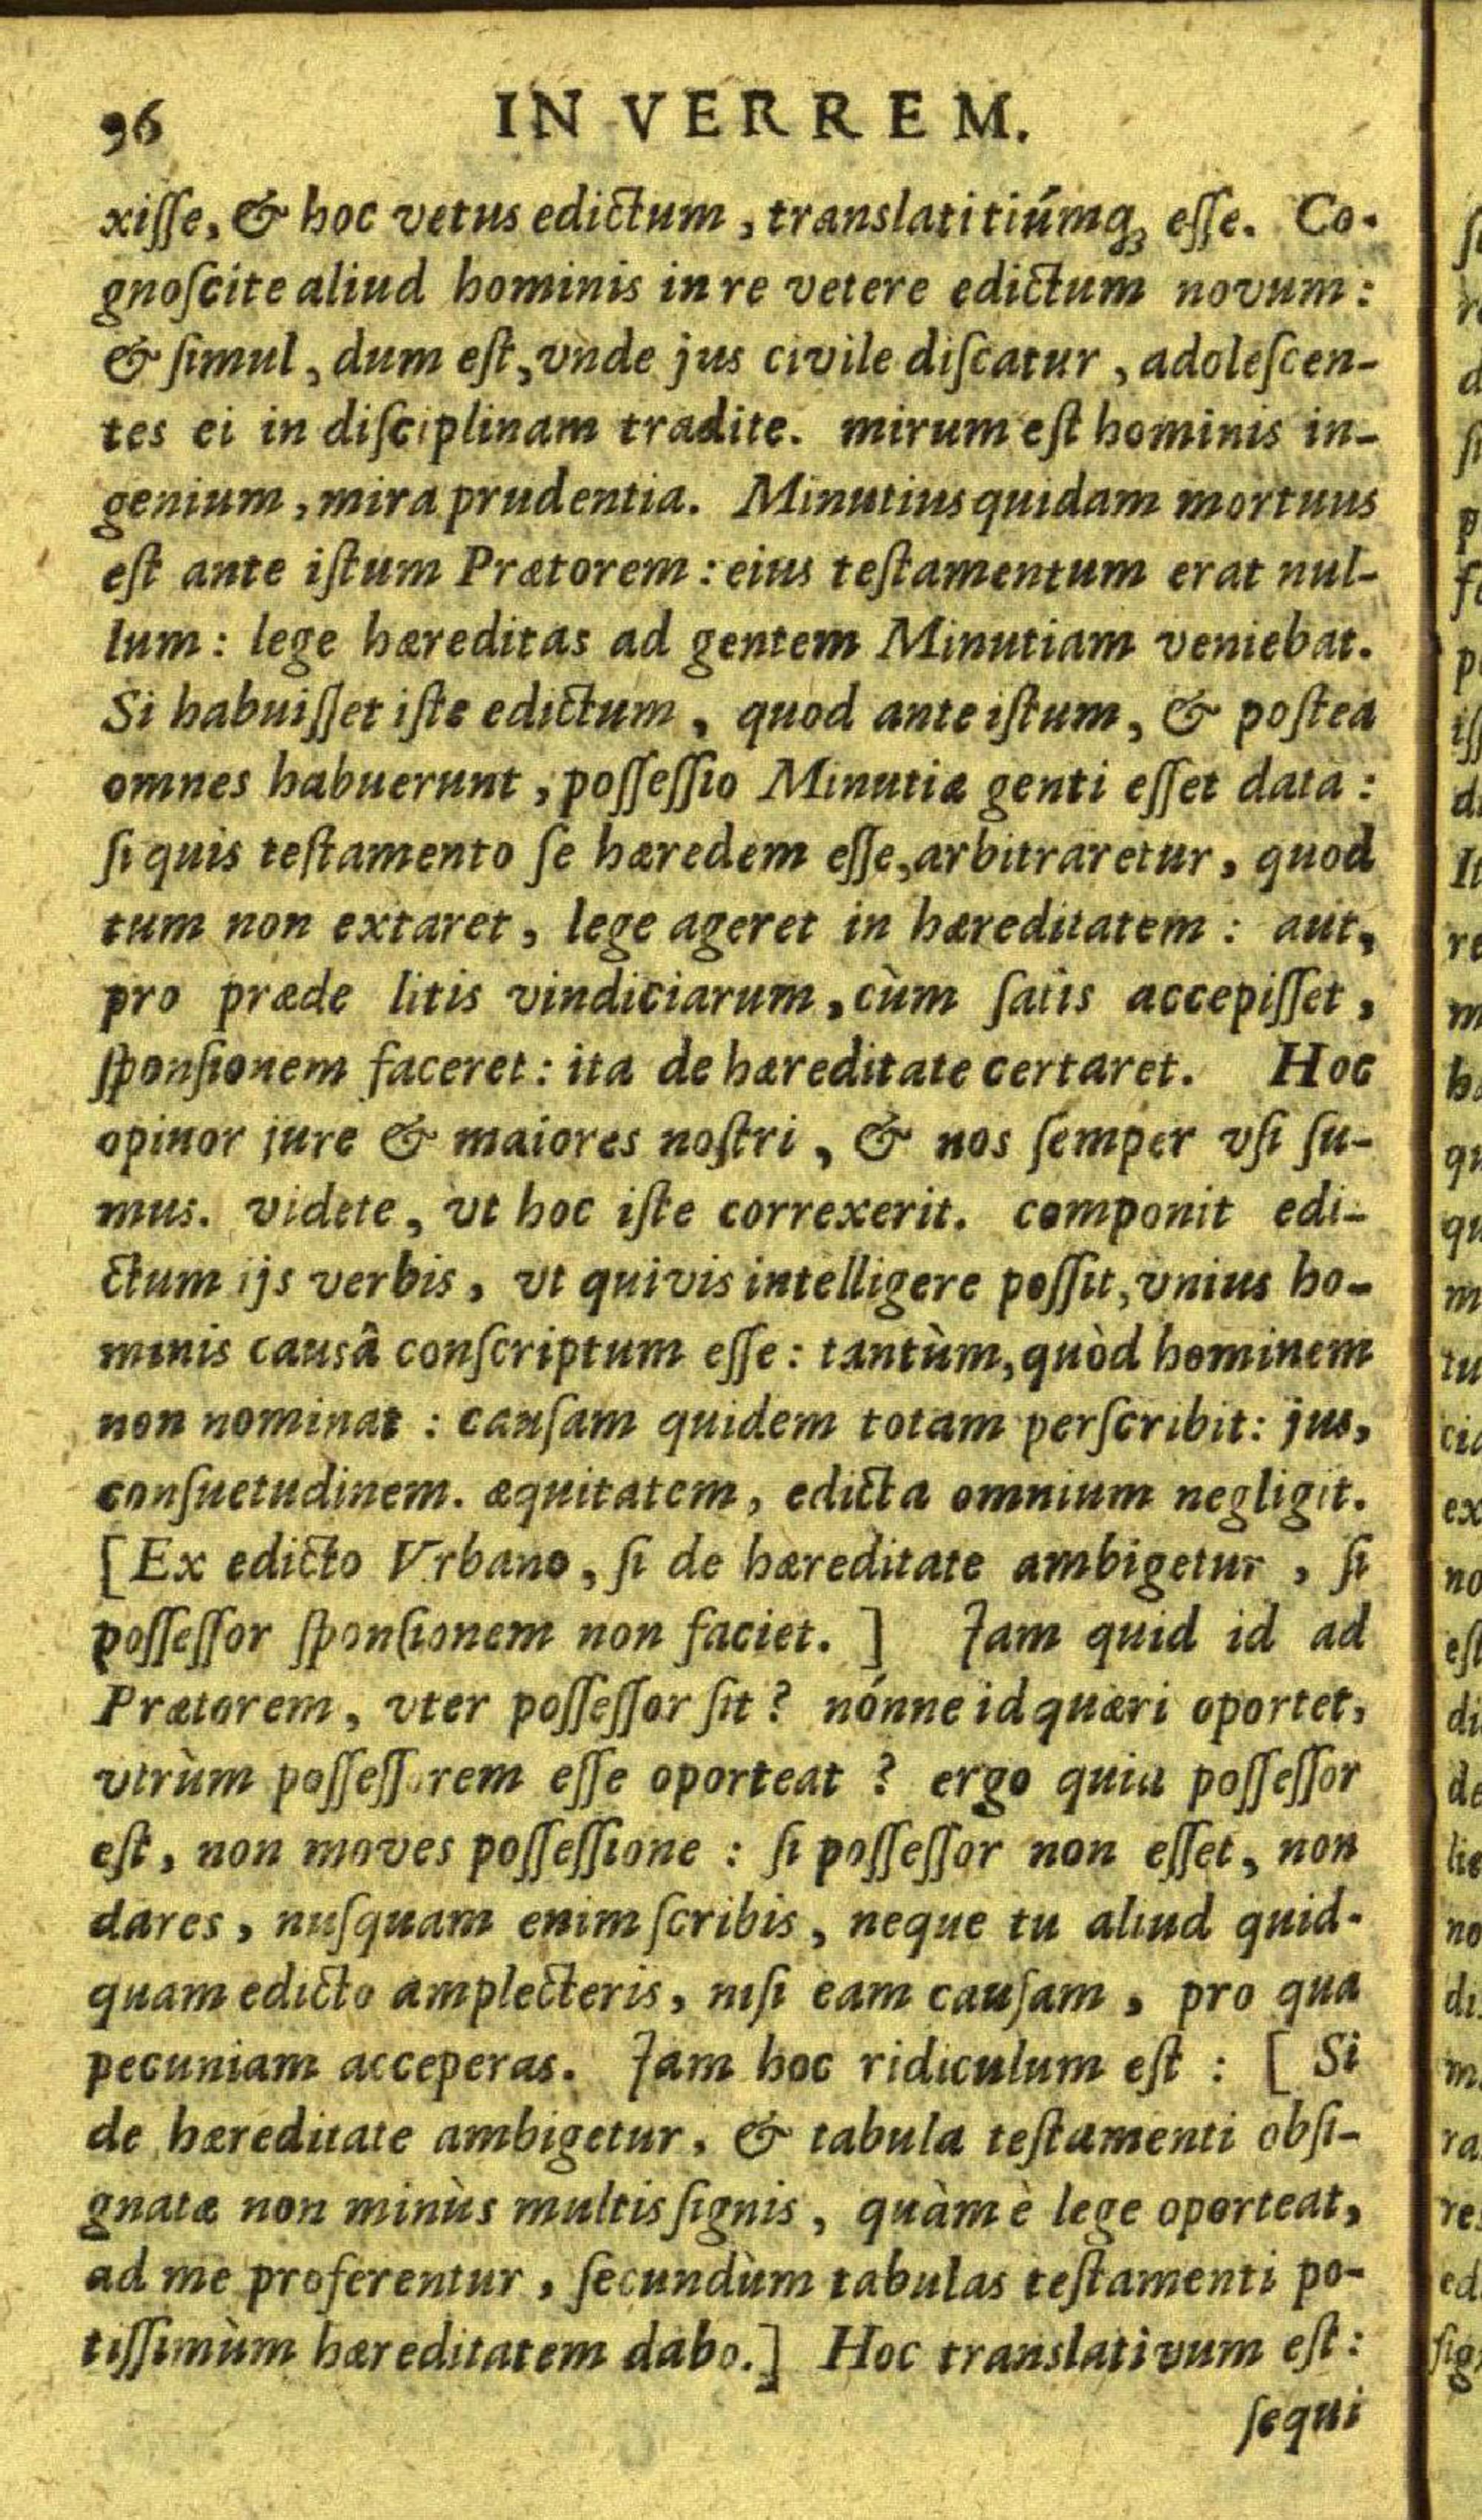 96 IN VERREM.
xiſſe, & hoc vetus edictum, translatitiúmq́; eſſe. Co-
gnoſcite aliud hominis in re vetere edictum novum:
& ſimul, dum eſt, vnde jus civile diſcatur, adoleſcen-
tes ei in diſciplinam tradite. mirum eſt hominis in-
genium, mira prudentia. Minutius quidam mortuus
eſt ante iſtum Prætorem: eius teſtamentum erat nul-
lum: lege hæreditas ad gentem Minutiam veniebat.
Si habuiſſet iſte edictum, quod ante iſtum, & poſtea
omnes habuerunt, poſſeſſio Minutiæ genti eſſet data:
ſi quis teſtamento ſe hæredem eſſe, arbitraretur, quod
tum non extaret, lege ageret in hæreditatem: aut,
pro præde litis vindiciarum, cùm ſatis accepiſſet,
ſponſionem faceret: ita de hæreditate certaret. Hoc
opinor jure & maiores noſtri, & nos ſemper vſi ſu-
mus. videte, vt hoc iſte correxerit. componit edi-
ctum ijs verbis, vt quivis intelligere poſſit, vnius ho-
minis causâ conſcriptum eſſe: tantùm, quòd hominem
non nominat: cauſam quidem totam perſcribit: jus,
conſuetudinem. æquitatem, edicta omnium negligit.
[Ex edicto Vrbano, ſi de hæreditate ambigetur, ſi
poſſeſſor ſponſionem non faciet.] Jam quid id ad
Prætorem, vter poſſeſſor ſit? nónne id quæri oportet,
vtrùm poſſeſſorem eſſe oporteat? ergo quia poſſeſſor
eſt, non moves poſſeſſione: ſi poſſeſſor non eſſet, non
dares, nuſquam enim ſcribis, neque tu aliud quid-
quam edicto amplecteris, niſi eam cauſam, pro qua
pecuniam acceperas. Jam hoc ridiculum eſt: [Si
de hæreditate ambigetur, & tabula teſtamenti obſi-
gnatæ non minùs multis ſignis, quàm è lege oporteat,
ad me proferentur, ſecundùm tabulas teſtamenti po-
tiſſimùm hæreditatem dabo.] Hoc translativum eſt:
ſequi